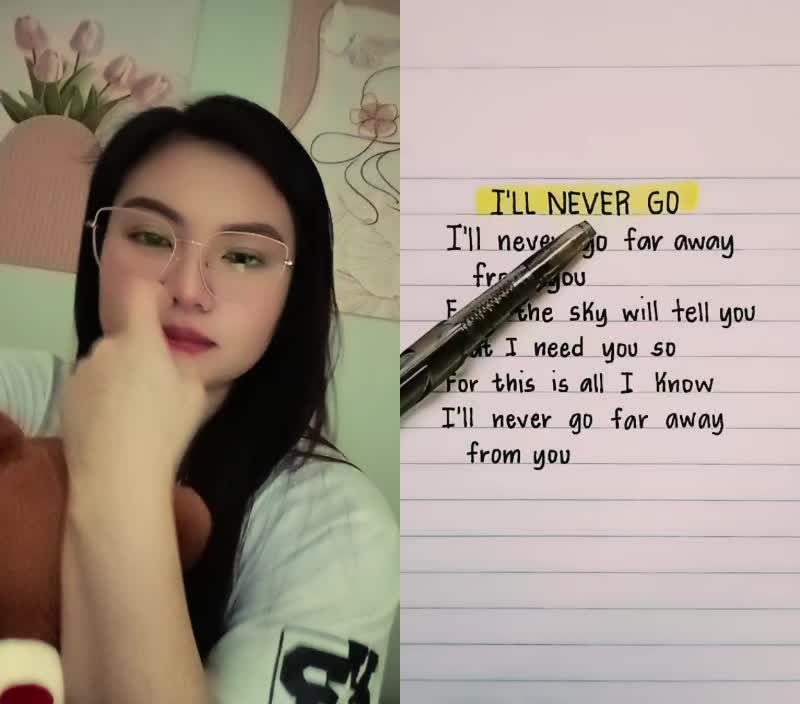 I'LL NEVER GO
I'll never go far away
from you
the sky will tell you
I need you so
For this is all I know
I'll never go far away
from you